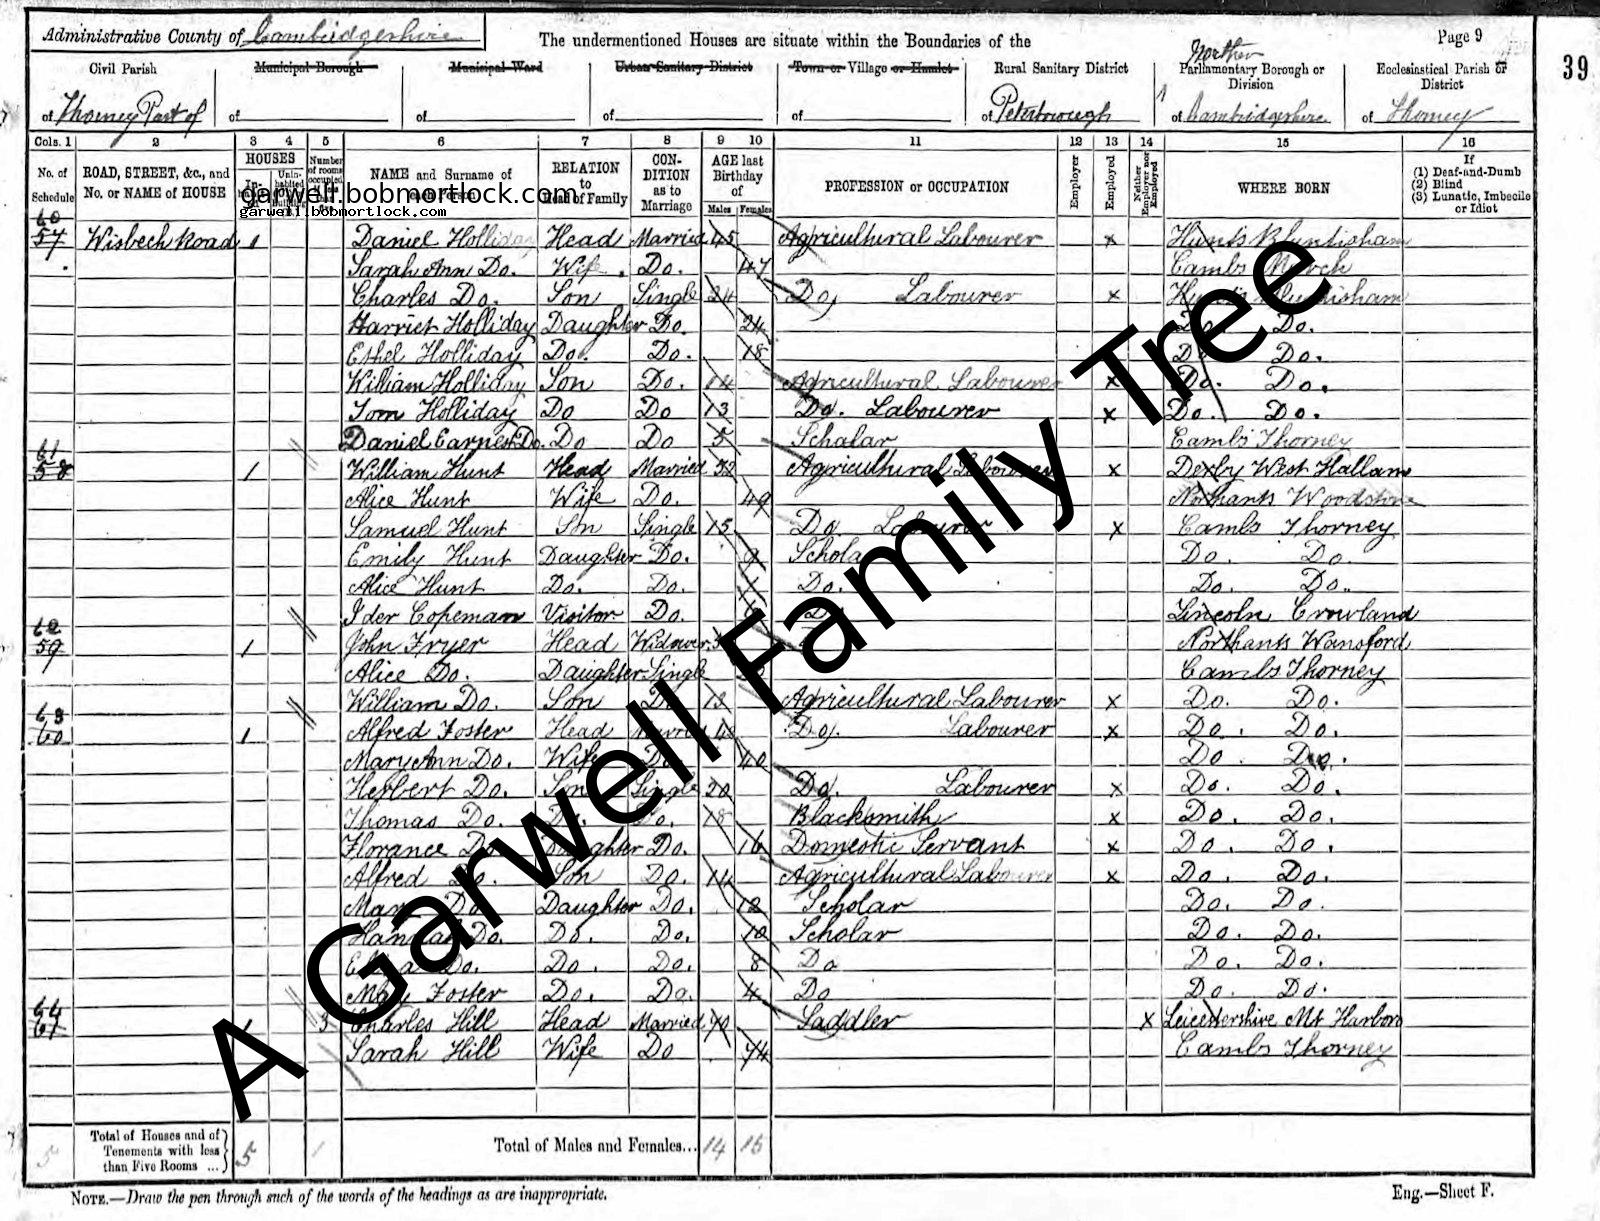 Administrative County of Cambridgeshire
The undermentioned Houses are situate within the Boundaries of the
Page 9
39
Civil Parish
of Thorney Part of
Municipal Borough
of
Municipal Ward
of
Urban Sanitary District
of
Town or Village or Hamlet
of
Rural Sanitary District
of Peterborough
Northern
Parliamentary Borough or
Division
of Cambridgeshire
Ecclesiastical Parish or
District
of Thorney
Cols. 1 2 3 4 5 6 7 8 9 10 11 12 13 14 15 16
No. of
Schedule
ROAD, STREET, &c., and
No. or NAME of HOUSE
HOUSES
Number
of rooms
occupied
NAME and Surname of
each Person
RELATION
to
Head of Family
CON-
DITION
as to
Marriage
AGE last
Birthday
of
Males Females
PROFESSION or OCCUPATION
Employer
Employed
Neither Employer nor Employed
WHERE BORN
If
(1) Deaf-and-Dumb
(2) Blind
(3) Lunatic, Imbecile
or Idiot
garwell.bobmortlock.com
garwell.bobmortlock.com
60
57 Wisbech Road 1 Daniel Holliday Head Married 45 Agricultural Labourer x Hunts Bluntisham
Sarah Ann Do. Wife. Do. 47 Cambs March
Charles Do. Son Single 24 Do. Labourer x Hunts Bluntisham
Harriet Holliday Daughter Do. 24 Do. Do.
Ethel Holliday Do. Do. 18 Do. Do.
William Holliday Son Do. 14 Agricultural Labourer x Do. Do.
Tom Holliday Do Do 13 Do. Labourer x Do. Do.
Daniel Earnest Do. Do Do 5 Scholar Cambs Thorney
61
58 1 William Hunt Head Married 52 Agricultural Labourer x Derby West Hallam
Alice Hunt Wife Do. 49 Northants Woodstone
Samuel Hunt Son Single 15 Do Labourer x Cambs Thorney
Emily Hunt Daughter Do. 9 Schola Do. Do.
Alice Hunt Do. Do. Do. Do. Do.
Ider Copeman Visitor Do. Do Lincoln Crowland
62
59 1 John Fryer Head Widower Northants Wansford
Alice Do. Daughter Single Cambs Thorney
William Do. Son Do 13 Agricultural Labourer x Do. Do.
63
60 1 Alfred Foster Head Married Do. Labourer x Do. Do.
Mary Ann Do. Wife Do 40 Do. Do.
Herbert Do. Son Single 20 Do. Labourer x Do. Do.
Thomas Do. Do. Do. 18 Blacksmith x Do. Do.
Florance Do. Daughter Do. 16 Domestic Servant x Do. Do.
Alfred Do. Son Do. 14 Agricultural Labourer x Do. Do.
Mary Do. Daughter Do. 12 Scholar Do. Do.
Hannah Do. Do. Do. 10 Scholar Do. Do.
Do. Do. Do. 8 Do Do. Do.
May Foster Do. Do. 4 Do Do. Do.
64
61 1 3 Charles Hill Head Married 70 Saddler x Leicestershire Mt Harboro
Sarah Hill Wife Do 74 Cambs Thorney
A Garwell Family Tree
5
Total of Houses and of
Tenements with less
than Five Rooms ...
5 1
Total of Males and Females... 14 15
NOTE.—Draw the pen through such of the words of the headings as are inappropriate.
Eng.—Sheet F.